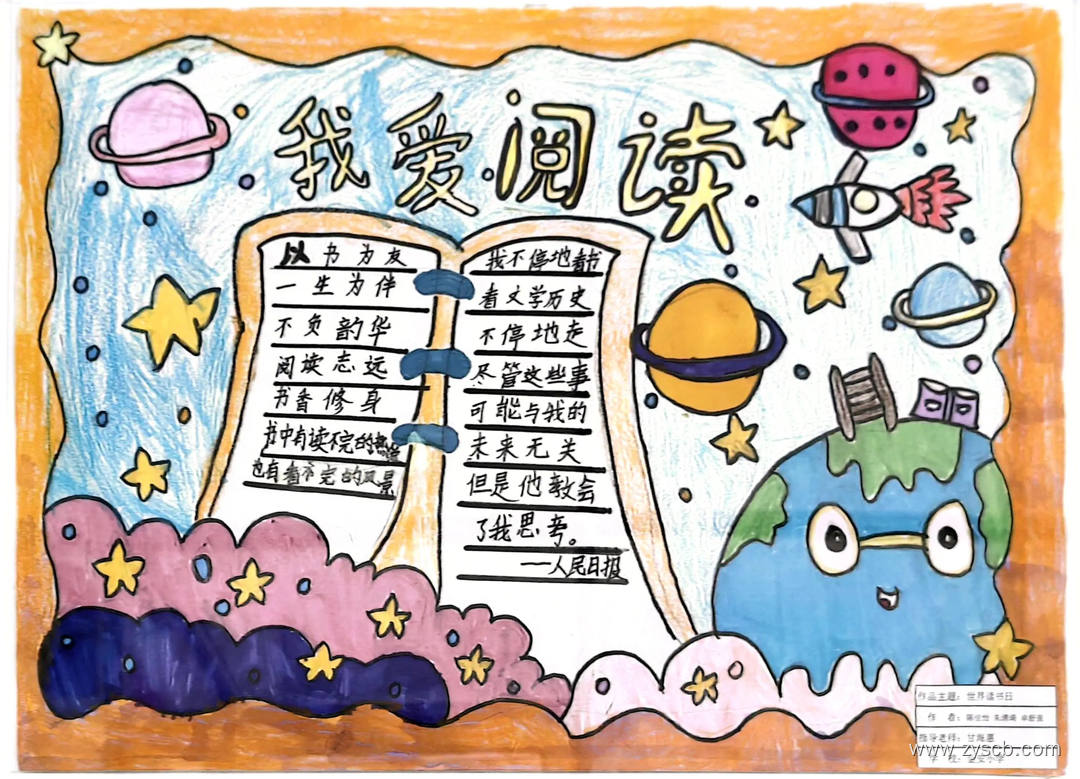 我爱阅读
以书为友
一生为伴
不负韵华
阅读志远
书香修身
书中有读不完的
也有看不完的风景
我不停地看书
看文学历史
不停地走
尽管这些事
可能与我的
未来无关
但是他教会
了我思考。
——人民日报
作品主题：世界读书日
作 者：
指导老师：甘海恩
学 校：
www.zyscb.com